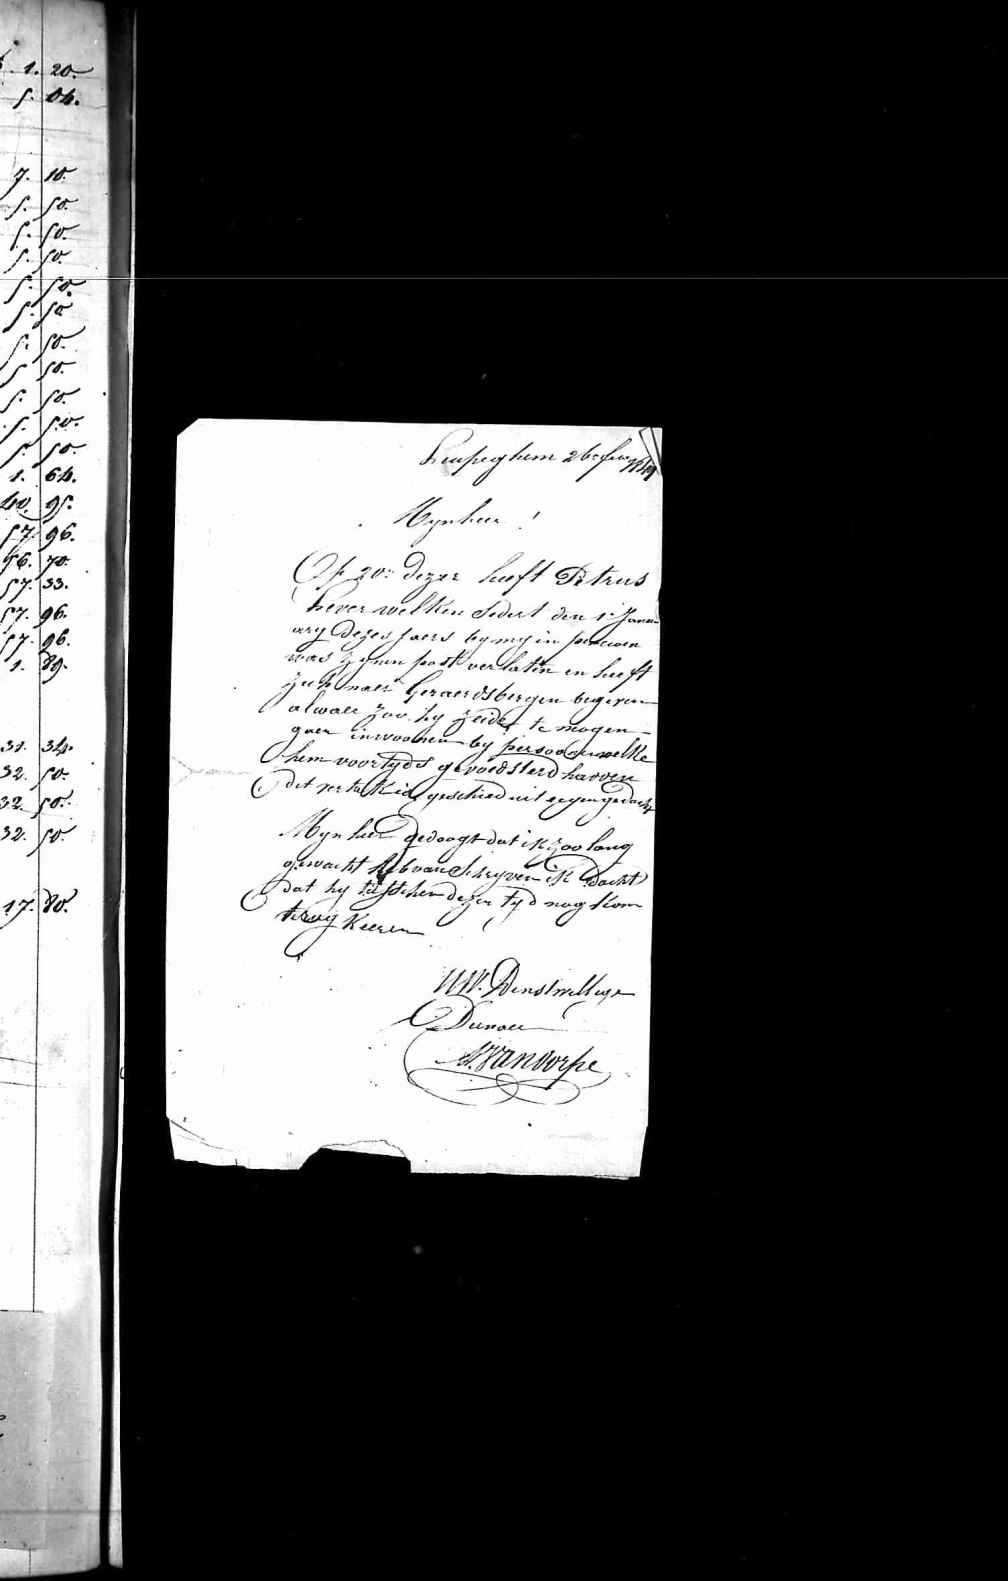 1. 20.
5. 04.
7. 10.
5. 50.
5. 50.
5. 50.
5. 50.
5. 50.
5. 50.
5. 50.
5. 50.
5. 50.
5. 50.
1. 64.
40. 95.
57. 96.
56. 70.
57. 33.
57. 96.
57. 96.
1. 89.
31. 34.
32. 50.
32. 50.
32. 50.
17. 80.
Leupeghem 26 feb 1849
Mynheer !
Op 20n dezer heeft Petrus
Lever welken sedert den 1n Janu
ary dezes jaers by my in
was zynen post verlaten en heeft
zich naer Geraerdsbergen begeven
alwaer zoo hy zeide te mogen
gaen inwoonen by persoonen welke
hem voortyds gevoedsterd hadden
dit vertrek is geschied uit eygen gedacht
Mynheer gedoogt dat ik zoo lang
gewacht heb van schryven ik dacht
dat hy tusschen dezen tyd nog kon
terug keeren
UW. Dienstwillige
Dienaer
Vandorpe